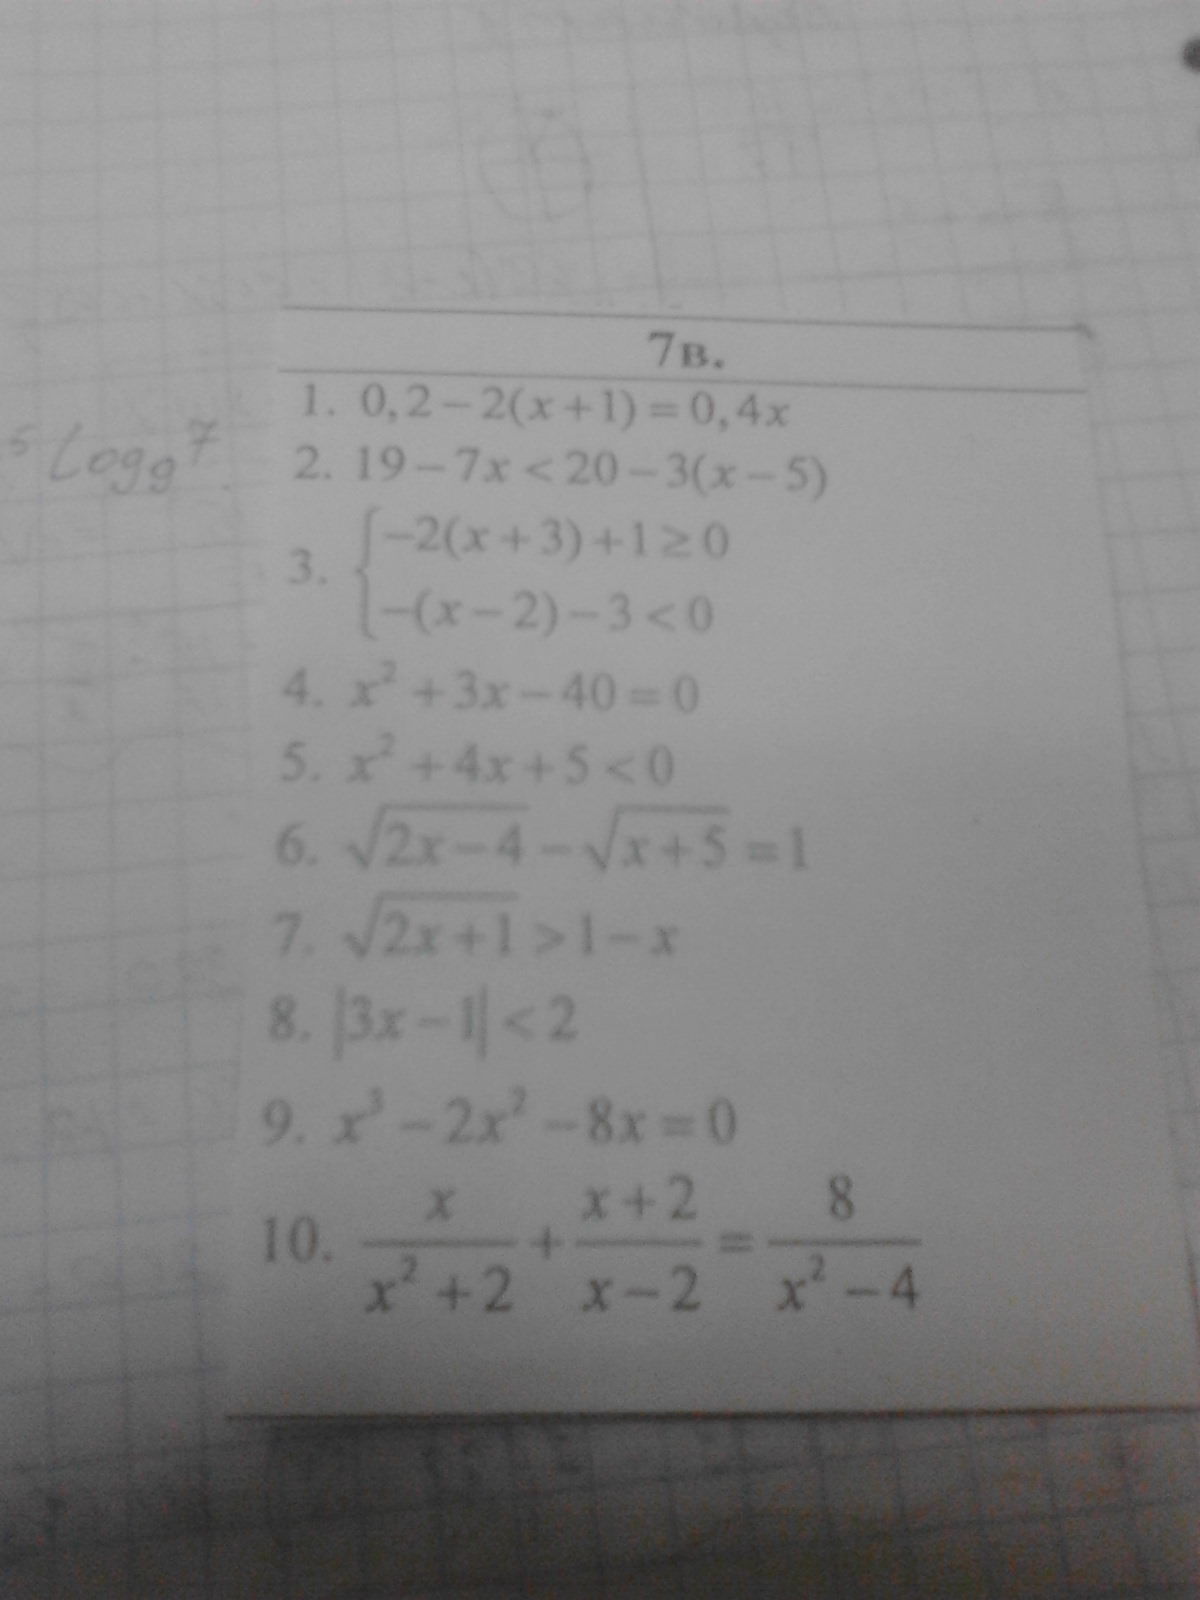 7в.
1. 0,2 − 2(x + 1) = 0,4x
5 Log₉7
2. 19 − 7x < 20 − 3(x − 5)
3. { −2(x + 3) + 1 ≥ 0
−(x − 2) − 3 < 0
4. x² + 3x − 40 = 0
5. x² + 4x + 5 < 0
6. √(2x − 4) − √(x + 5) = 1
7. √(2x + 1) > 1 − x
8. |3x − 1| < 2
9. x³ − 2x² − 8x = 0
10. x/(x² + 2) + (x + 2)/(x − 2) = 8/(x² − 4)